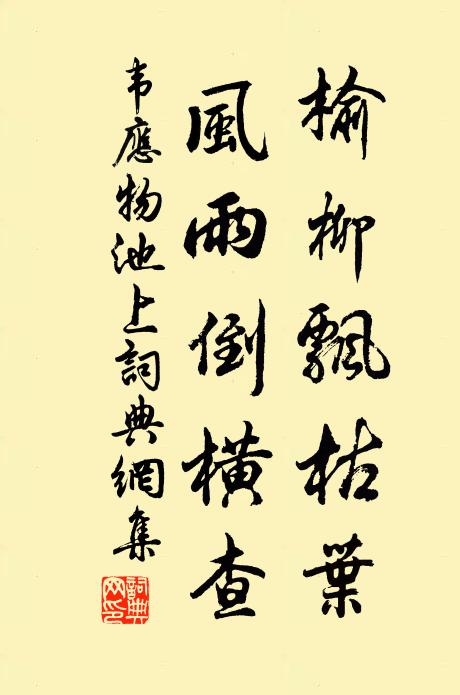 榆柳飄枯葉
風雨倒橫查
韦應物池上詞典網集
詞典網印